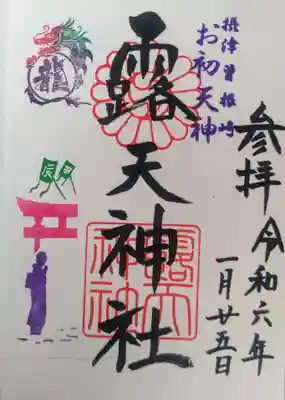 参拝 令和六年
一月廿五日
摂津曽根崎
お初天神
露天神社
露天
神社
龍
辰